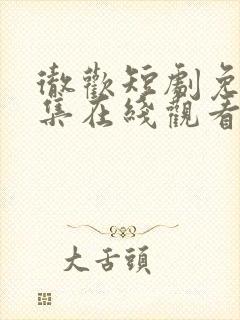 徹歡短劇免
集在綫觀看
大舌頭